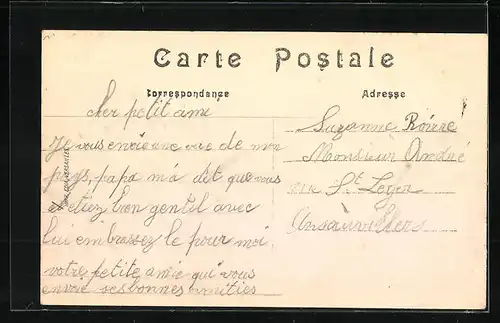 Carte Postale
Correspondance
Adresse
cher petit ami
Je vous envoie une vue de mon
pays, papa m'a dit que vous
etiez bon gentil avec
lui embrassez le pour moi
votre petite amie qui vous
envoie ses bonnes amities
Suzanne
Monsieur André
rue St Leger
Ansauvillers